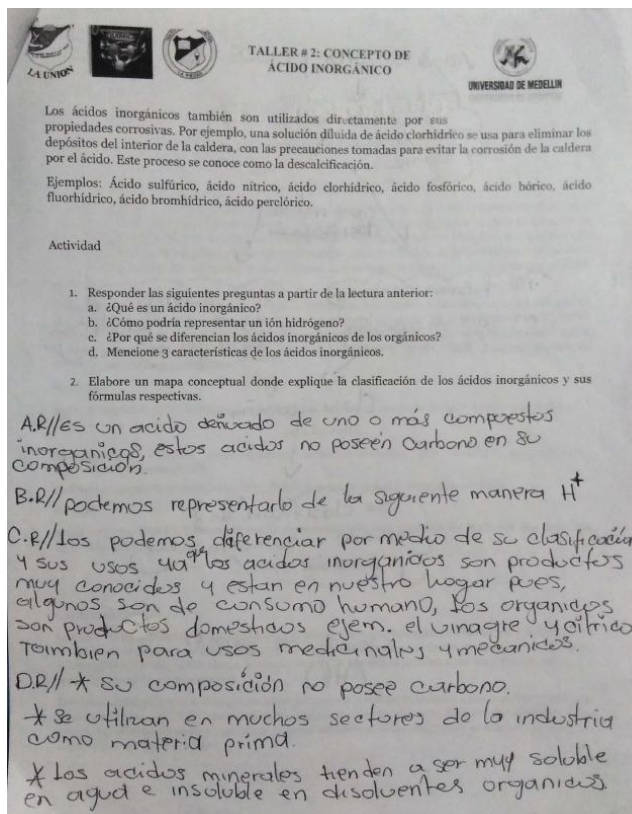 LA UNION
TALLER # 2: CONCEPTO DE
ÁCIDO INORGÁNICO
UNIVERSIDAD DE MEDELLIN
Los ácidos inorgánicos también son utilizados directamente por sus
propiedades corrosivas. Por ejemplo, una solución diluida de ácido clorhídrico se usa para eliminar los
depósitos del interior de la caldera, con las precauciones tomadas para evitar la corrosión de la caldera
por el ácido. Este proceso se conoce como la descalcificación.
Ejemplos: Ácido sulfúrico, ácido nítrico, ácido clorhídrico, ácido fosfórico, ácido bórico, ácido
fluorhídrico, ácido bromhídrico, ácido perclórico.
Actividad
1. Responder las siguientes preguntas a partir de la lectura anterior:
a. ¿Qué es un ácido inorgánico?
b. ¿Cómo podría representar un ión hidrógeno?
c. ¿Por qué se diferencian los ácidos inorgánicos de los orgánicos?
d. Mencione 3 características de los ácidos inorgánicos.
2. Elabore un mapa conceptual donde explique la clasificación de los ácidos inorgánicos y sus
fórmulas respectivas.
A.R//Es un acido derivado de uno o más compuestos
inorganicos, estos acidos no poseen Carbono en su
composición.
B.R// podemos representarlo de la siguiente manera H+
C.R//Los podemos diferenciar por medio de su clasificación
y sus usos ya que los acidos inorganicos son productos
muy conocidos y estan en nuestro hogar pues,
algunos son de consumo humano, Los organicos
son productos domesticos ejem. el vinagre y citrico
Taimbien para usos medicinales y mecanicos.
D.R// * Su composición no posee carbono.
* Se utilizan en muchos sectores de la industria
como materia prima.
* Los acidos minerales tienden a ser muy soluble
en agua e insoluble en disolventes organicos